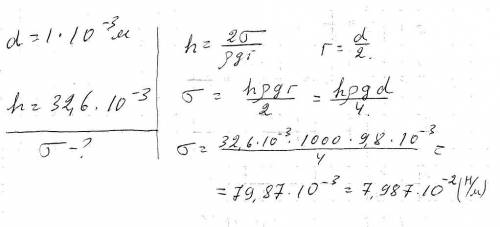 d = 1 · 10⁻³ м
h = 32,6 · 10⁻³
σ - ?
h = 2σ / ρgr    r = d / 2.
σ = hρgr / 2 = hρgd / 4.
σ = 32,6 · 10⁻³ · 1000 · 9,8 · 10⁻³ / 4 =
= 79,87 · 10⁻³ = 7,987 · 10⁻² (Н/м)